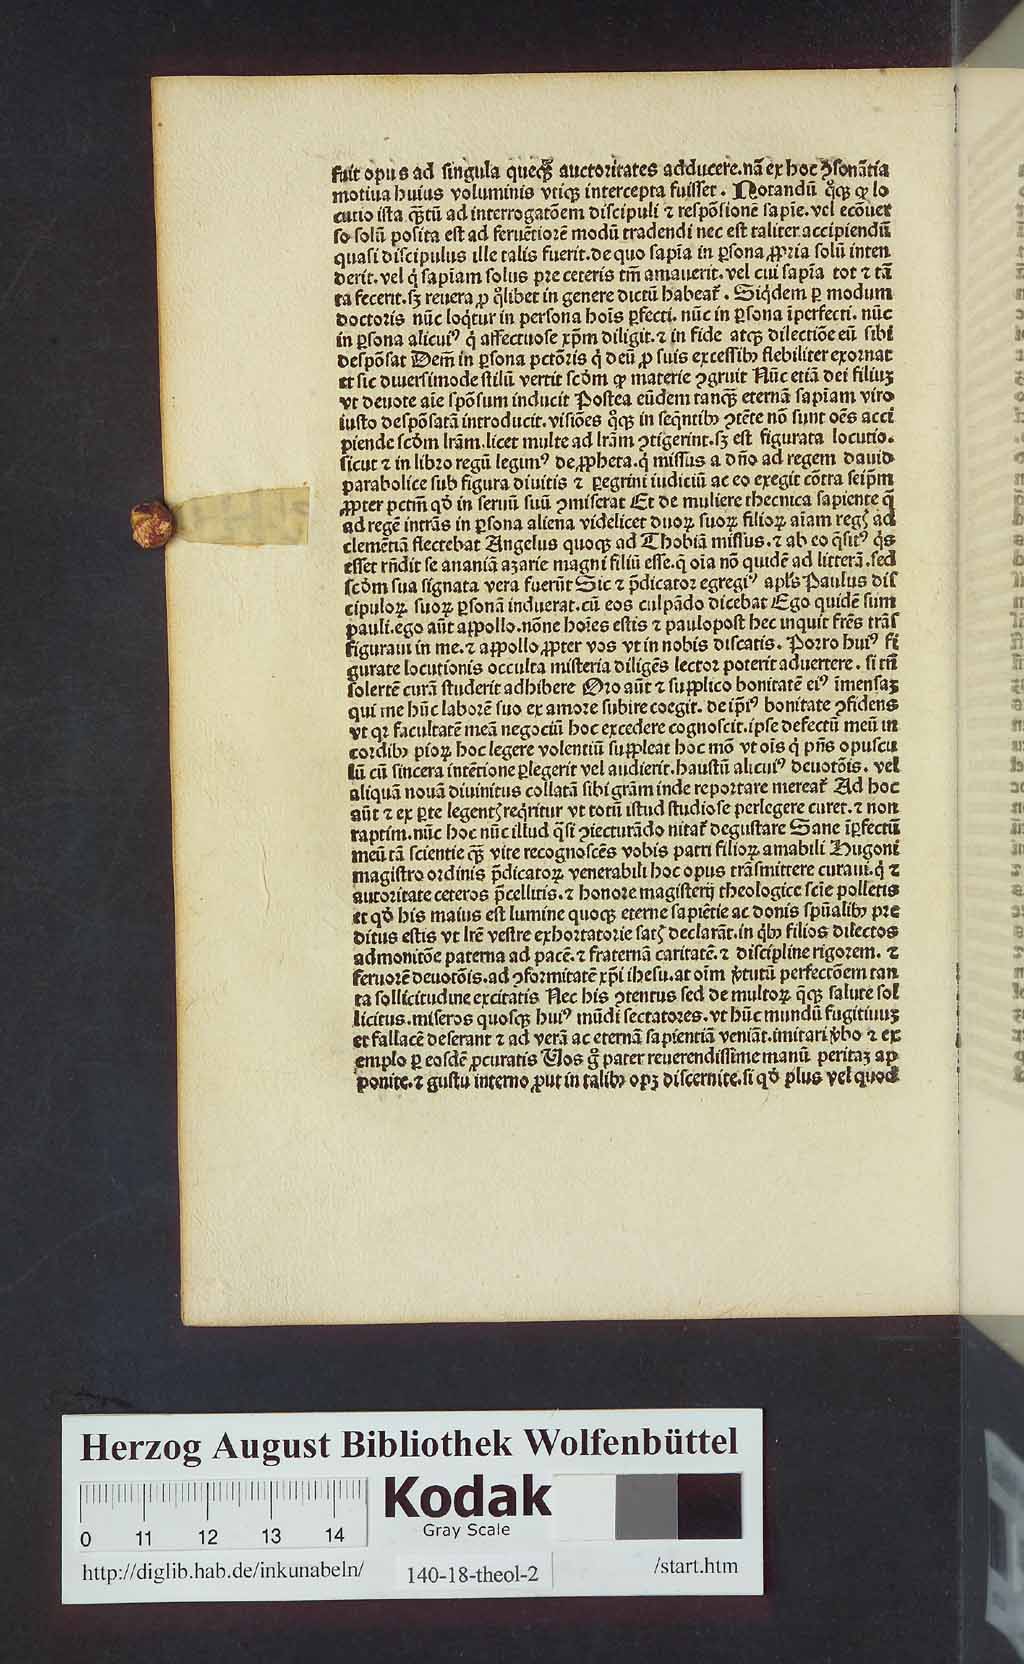 fuit opus ad singula queqꝫ auctoritates adducere.nā ex hoc ꝯsonātia
motiua huius voluminis vtiqꝫ intercepta fuisset. Notandū qͦqꝫ ꝙ lo
cutio ista qͣꝫtū ad interrogatōem discipuli ⁊ respōsionē sapīe.vel ecōuer
so solū posita est ad feruētiorē modū tradendi nec est taliter accipiendū
quasi discipulus ille talis fuerit.de quo sapīa in ꝑsona ꝓpria solū inten
derit.vel qͥ sapīam solus pre ceteris tm̄ amauerit.vel cui sapīa tot ⁊ tā
ta fecerit.sꝫ reuera ꝓ qͦlibet in genere dictū habeat᷑. Siqͥdem ꝑ modum
doctoris nūc loqͥtur in persona hoīs ꝑfecti. nūc in ꝑsona īperfecti. nūc
in ꝑsona alicuiꝰ qͥ affectuose xp̄m diligit.⁊ in fide atqꝫ dilectiōe eū sibi
despōsat Dem̄ in ꝑsona pctōris qͥ deū ꝓ suis excessibꝫ flebiliter exornat
et sic diuersimode stilū vertit scd̓m ꝙ materie ꝯgruit Nūc etiā dei filiuꝫ
vt deuote aīe spōsum inducit Postea eūdem tanqꝫ̄ eternā sapīam viro
iusto despōsatā introducit.visiōes qͦqꝫ in seqn̄tibꝫ ꝯtēte nō sunt oēs acci
piende scd̓m lr̄am.licet multe ad lr̄am ꝯtigerint.sꝫ est figurata locutio.
sicut ⁊ in libro regū legimꝰ de ꝓpheta.qͥ missus a dn̄o ad regem dauid
parabolice sub figura diuitis ⁊ ꝑegrini iudiciū ac eo exegit cōtra seip̄m
ꝓpter pctm̄ qd̓ in seruū suū ꝯmiserat Et de muliere thecuica sapiente q̄
ad regē intrās in ꝑsona aliena videlicet duoꝝ suoꝝ filioꝝ aīam regꝭ ad
clemētiā flectebat Angelus quoqꝫ ad Thobiā missus.⁊ ab eo qͣsitꝰ qͥs
esset rn̄dit se ananiā azarie magni filiū esse.q̄ oīa nō quidē ad litterā.sed
scd̓m sua signata vera fuerūt Sic ⁊ p̄dicator egregiꝰ apl̄s Paulus dis
cipuloꝝ suoꝝ ꝑsonā induerat.cū eos culpādo dicebat Ego quidē sum
pauli.ego aūt appollo.nōne hoīes estis ⁊ paulopost hec inquit fr̄es trās
figuraui in me.⁊ appollo ꝓpter vos vt in nobis discatis. Porro huiꝰ fi
gurate locutionis occulta misteria diligēs lector poterit aduertere. si tn̄
solertē curā studerit adhibere Oro aūt ⁊ supplico bonitatē eiꝰ īmensaꝫ
qui me hūc laborē suo ex amore subire coegit. de ip̄iꝰ bonitate ꝯfidens
vt qꝛ facultatē meā negociū hoc excedere cognoscit.ipse defectū meū in
cordibꝫ pioꝝ hoc legere volentiū suppleat hoc mō vt oīs qͥ pn̄s opuscu
lū cū sincera intētione ꝑlegerit vel audierit.haustū alicuiꝰ deuotōis. vel
aliquā nouā diuinitus collatā sibi gr̄am inde reportare mereat᷑ Ad hoc
aūt ⁊ ex ꝑte legentꝭ reqͥritur vt totū istud studiose perlegere curet.⁊ non
raptim.nūc hoc nūc illud qͣsi ꝯiecturādo nitat᷑ degustare Sane īꝑfectū
meū tā scientie qͣꝫ vite recognoscēs vobis patri filioꝝ amabili Hugoni
magistro ordinis p̄dicatoꝝ venerabili hoc opus trāsmittere curaui.qͥ ⁊
autoritate ceteros p̄cellitis.⁊ honore magisterij theologice scīe polletis
et qd̓ his maius est lumine quoqꝫ eterne sapiētie ac donis spūalibꝫ pre
ditus estis vt lr̄e vestre exhortatorie satꝭ declarāt.in qͥbꝫ filios dilectos
admonitōe paterna ad pacē.⁊ fraternā caritatē.⁊ discipline rigorem. ⁊
feruorē deuotōis.ad ꝯformitatē xp̄i ihesu.at oīm v̓tutū perfectōem tan
ta sollicitudine excitatis Nec his ꝯtentus sed de multoꝝ qͦqꝫ salute sol
licitus.miseros quosqꝫ huiꝰ mūdi sectatores.vt hūc mundū fugitiuuꝫ
et fallacē deserant ⁊ ad verā ac eternā sapientiā veniāt.imitari v̓bo ⁊ ex
emplo ꝑ eosdē ꝓcuratis Vos gͦ pater reuerendissime manū peritaꝫ ap
ponite.⁊ gustu interno ꝓut in talibꝫ opꝫ discernite.si qd̓ plus vel quod
Herzog August Bibliothek Wolfenbüttel
Kodak
Gray Scale
0 11 12 13 14
http://diglib.hab.de/inkunabeln/ 140-18-theol-2 /start.htm